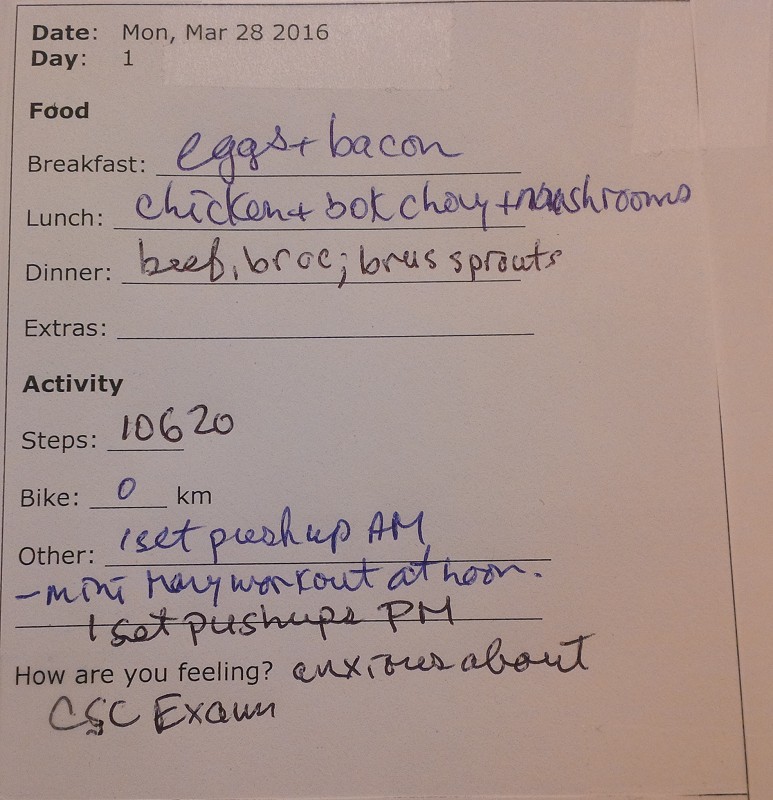 Date: Mon, Mar 28 2016
Day: 1
Food
Breakfast: eggs + bacon
Lunch: chicken + bok choy + mushrooms
Dinner: beef, broc; brus sprouts
Extras:
Activity
Steps: 10620
Bike: 0 km
Other: 1 set pushup AM
- mini workout at noon.
1 set pushups PM
How are you feeling? anxious about
CSC Exam